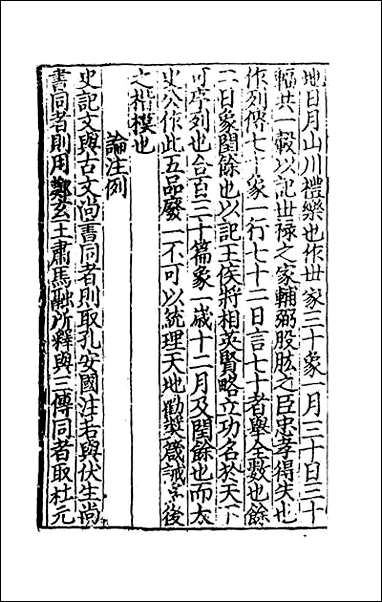 地日月山川禮樂也作世家三十象一月三十日三十
輻共一轂以記世祿之家輔弼股肱之臣忠孝得失也
作列傳七十象一行七十二日言七十者舉全數也餘
二日象閏餘也以記王侯將相英賢略立功名於天下
可序列也合百三十篇象一歲十二月及閏餘也而太
史公作此五品廢一不可以統理天地勸奬箴誡爲後
之楷模也
論注例
史記文與古文尚書同者則取孔安國注若與伏生尚
書同者則用鄭玄王肅馬融所釋與三傳同者取杜元